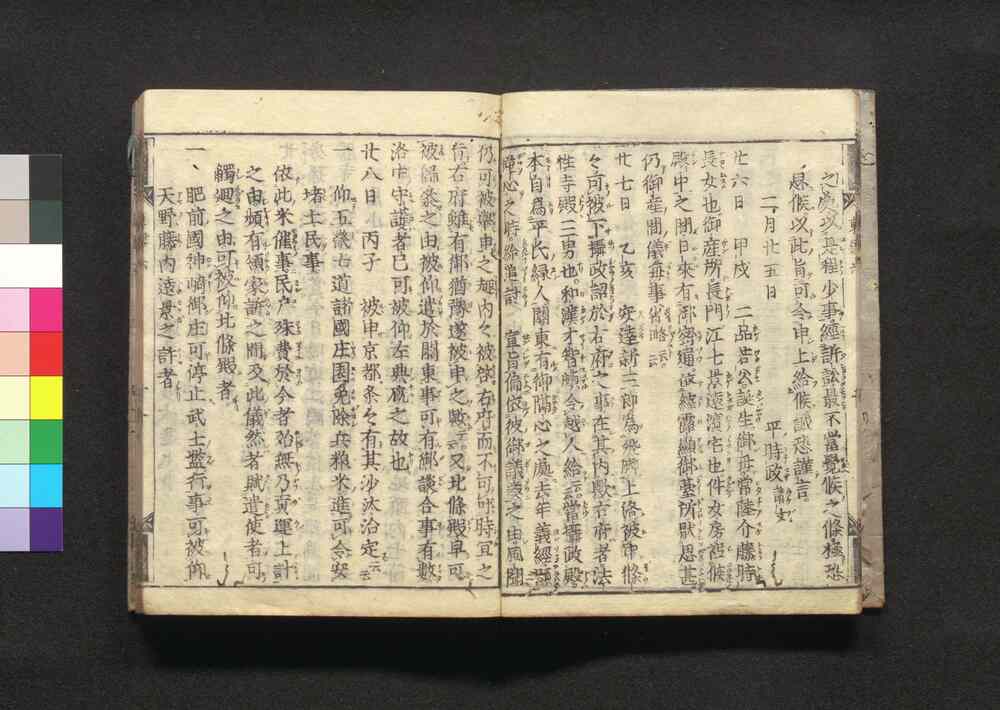 之處以是程少事經訴訟最不當覺候之條極恐
恩候以此旨可令申上給候誠恐謹言
二月廿五日 平時政
廿六日 甲戌 二品若公誕生御母常陸介藤時
長女也御産所長門江七景遠濱宅也件女房祗候
殿中之間日來有御密通依縫露顯御臺所猒思甚
仍御産間儀毎事省略云云
廿七日 乙亥 安達新三郎為飛脚上洛被申條
々可被下攝政詔於右府之事在其內歟右府者法
性寺殿三男也和漢才智頗令越人給云云當攝政殿
本自為平氏緣人關東有御隔心之處去年義經謀
宣旨偏依彼御議奏之由風聞
仍可被舉申之趣內々被啓右府而不可叶時宜之
行右府雖有御猶豫遂被申之歟云云又北條殿早可
被歸參之由被仰遣於關東事可有御談合事有數
洛中守護者已可被仰左典廐之故也
廿八日 丙子 被申京都条々有其沙汰治定云云
一 仰五畿七道諸國庄園免除兵粮米進可令安
堵土民事
依此米催事民戶殊費於今者殆無乃貢運上計
之由頻有領家訴之間及此儀然者賦遣使者可
觸廻之由可被仰北條殿者
一、肥前國神崎御庄可停止武士濫行事可被仰
天野藤內遠景之許者